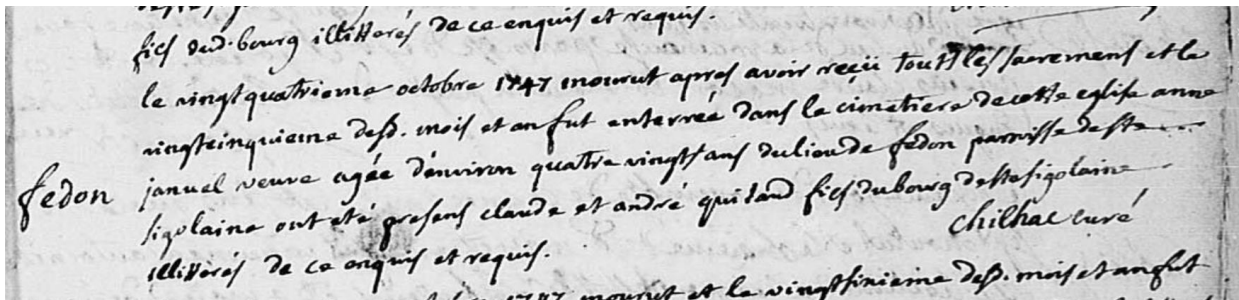 fils dud. bourg illitterés de ce enquis et requis.
le vingtquatrieme octobre 1747 mourut apres avoir reçü tout les sacremens et le
vingtcinquieme desd. mois et an fut enterrée dans le cimetiere de cette eglise anne
fedon
januel veuve agée d'environ quatre vingts ans du lieu de fedon parroisse de ste
sigolaine ont eté presens claude et andré quitaud fils du bourg de ste sigolaine
chilhac curé
illitterés de ce enquis et requis.
1747 mourut et le vingtsixieme desd. mois et an fut